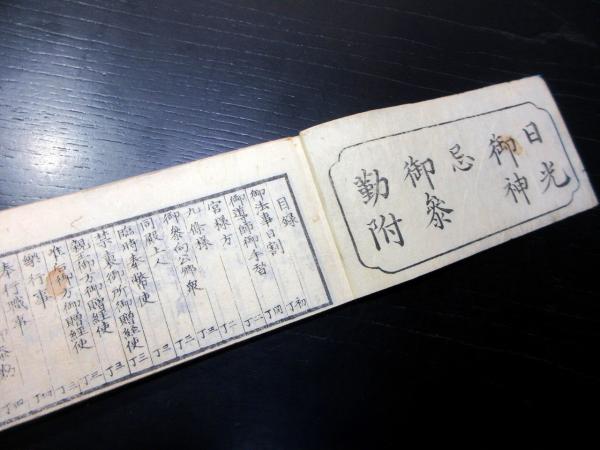 日光
御神
忌
御参
勤附
目録
御法事日割 丁初
御導師御本智 丁同
宮様方 丁二
九條様 丁二
御参向公卿衆 丁三
同殿上人 丁三
臨時奉幣使 丁三
禁裏御所御贈経使 丁三
親王御方御贈経使 丁三
准后御方御贈経使
樂行事
奉行職事 丁四